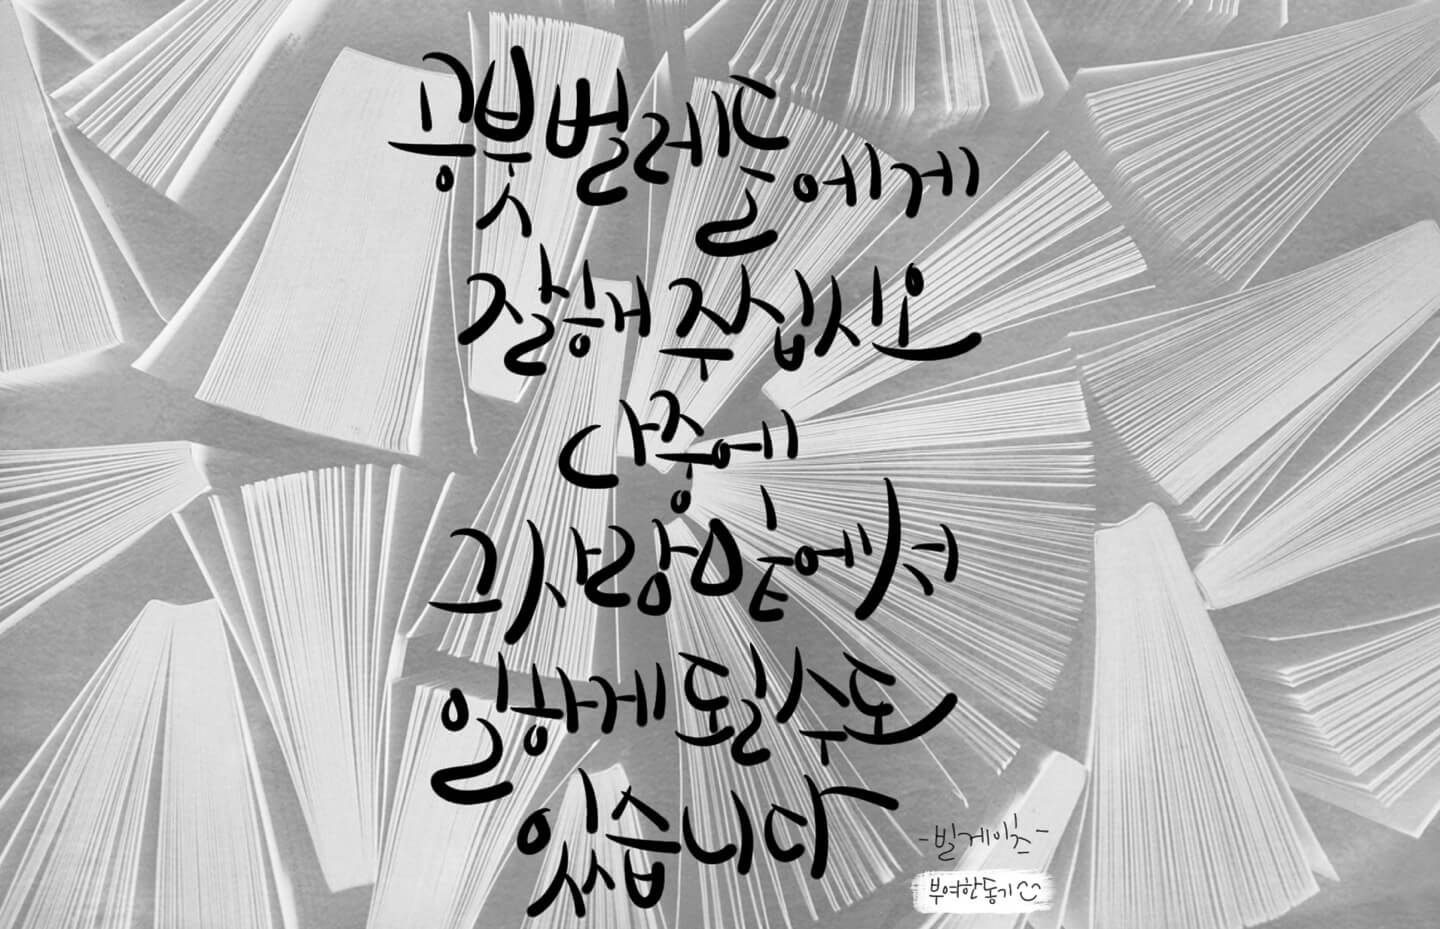 공붓벌레들에게
잘해 주십시오
나중에
그 사람 밑에서
일하게 될 수도
있습니다
-빌게이츠-
부여한동기